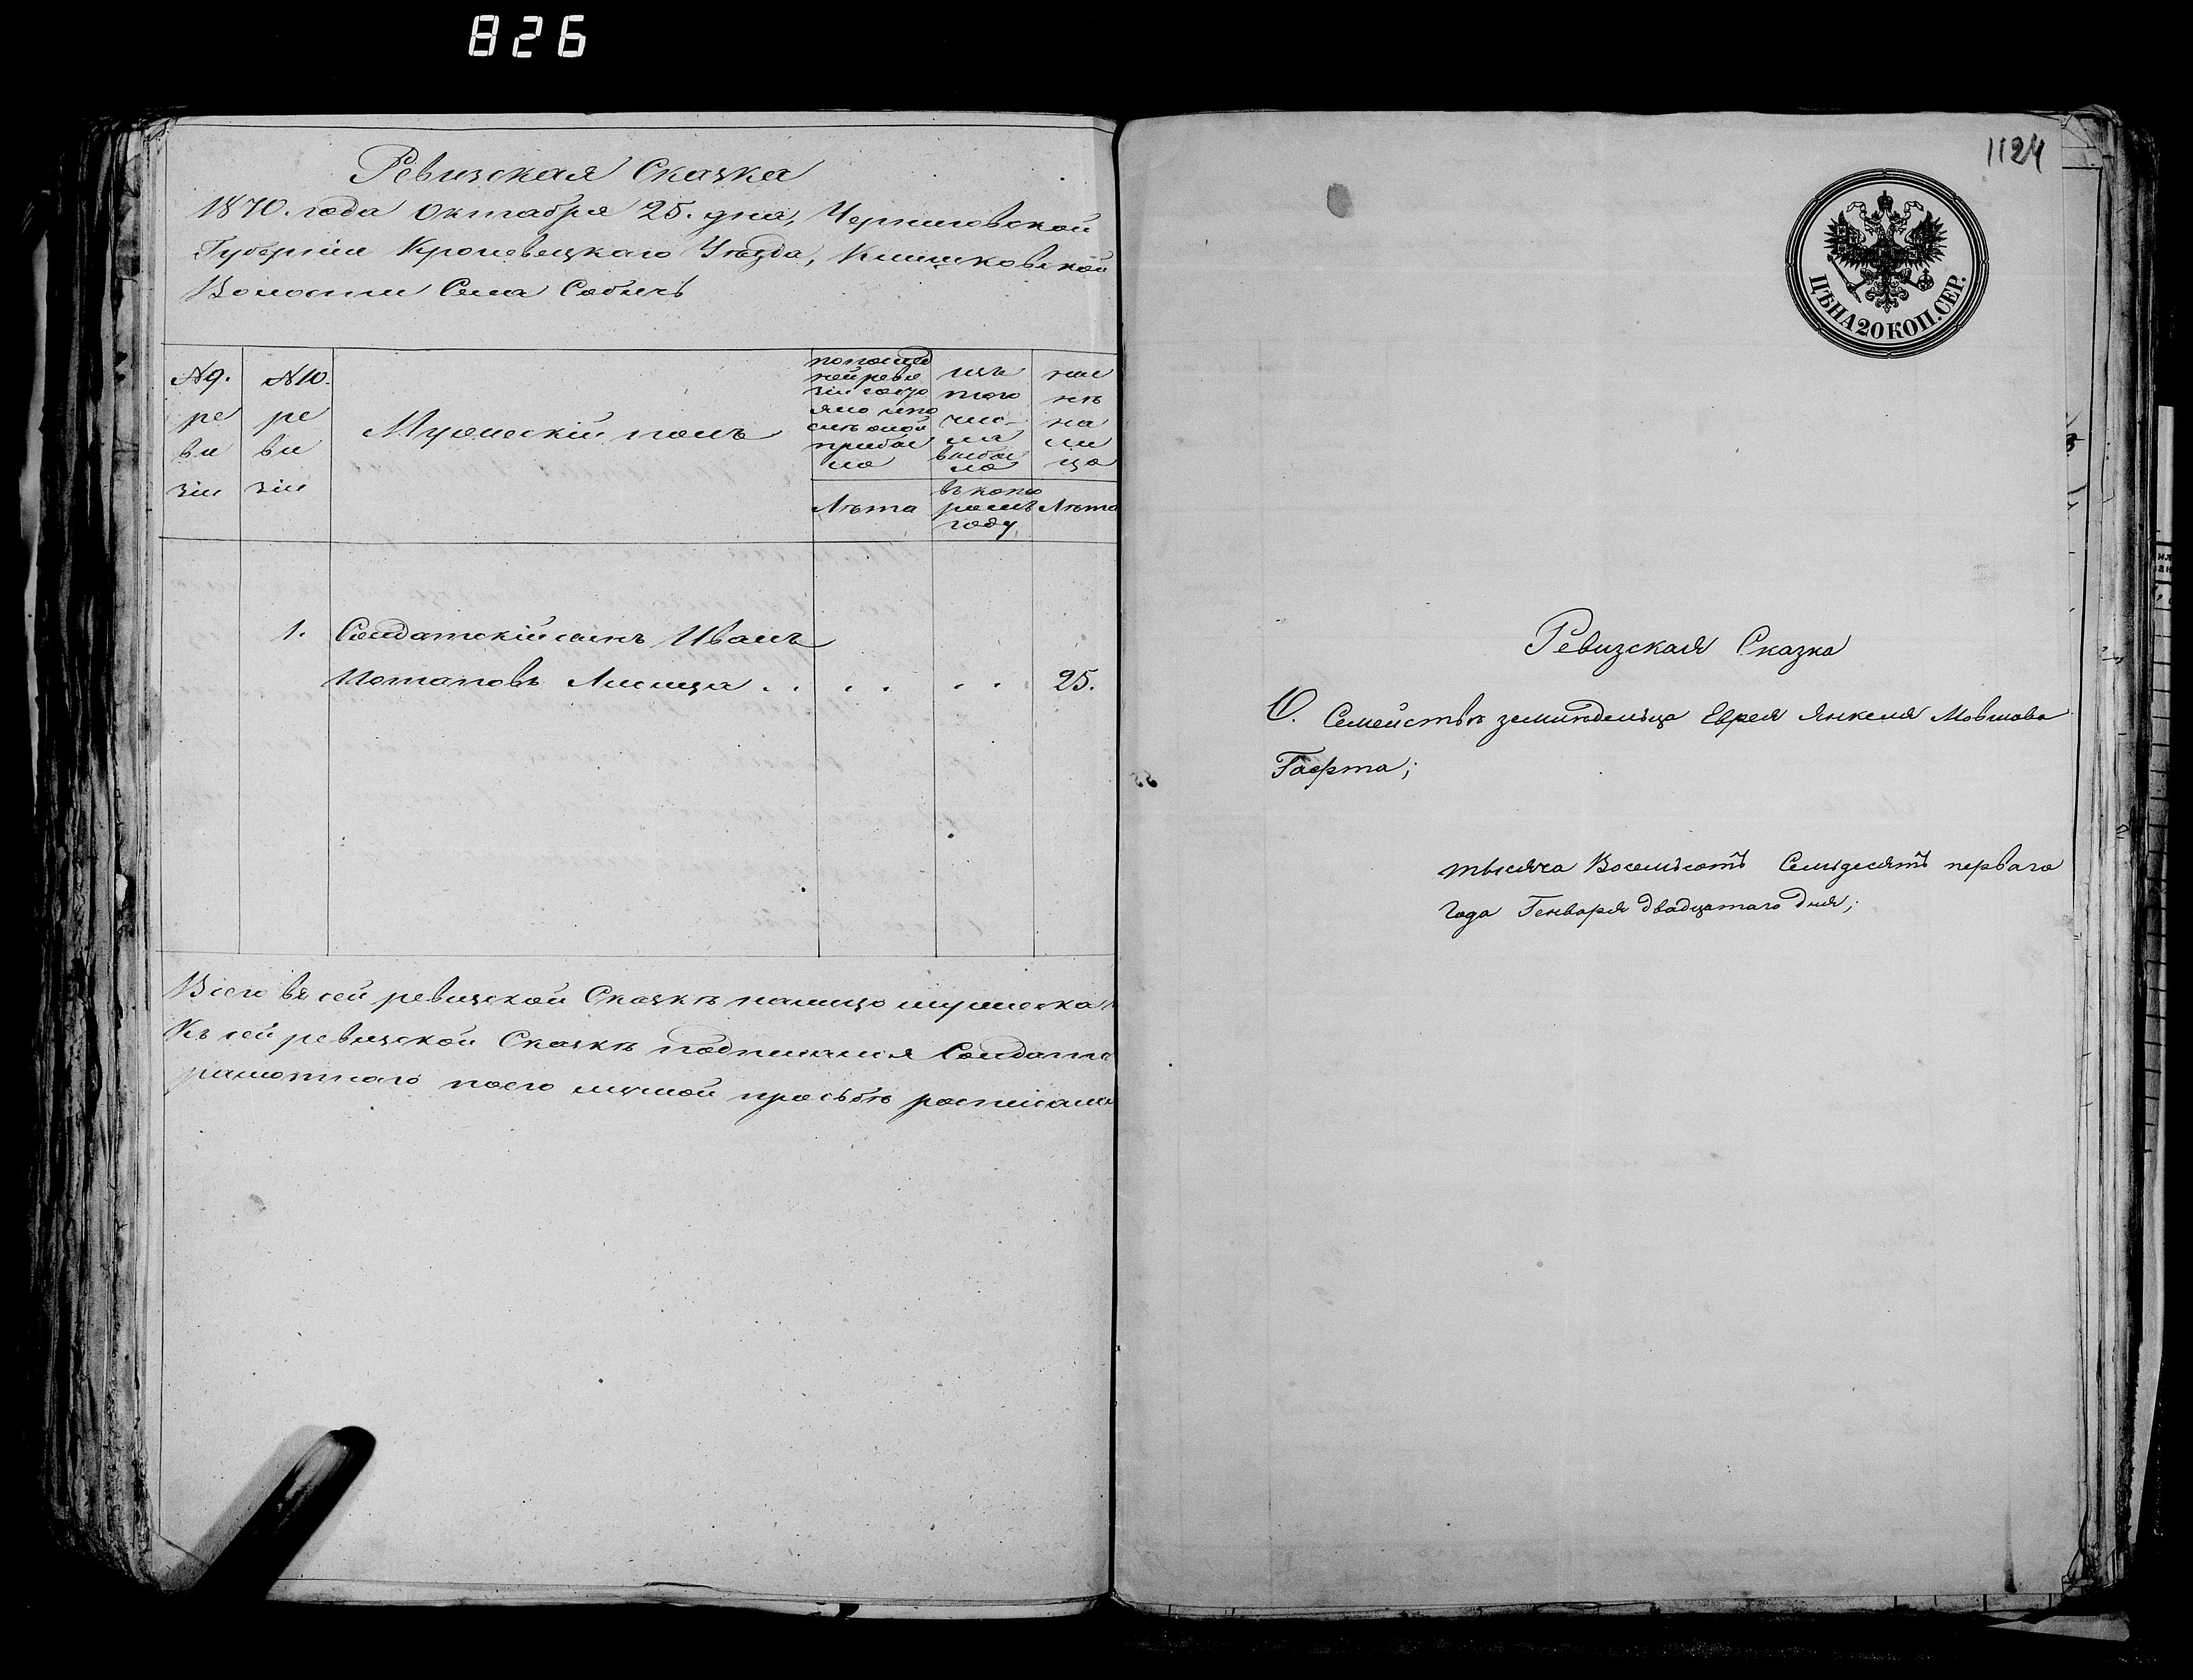 826
Ревизская Сказка
1870. года Октября 25. дня, Черниговской
Губерніи Кролевецкаго Уѣзда, Клишковской
Волости Села Собичъ
№9. ре ви зіи
№10. ре ви зіи
Мужескій полъ
по послѣд
ней реви
зіи состо
яло и по
слѣ оной
прибы
ло
Лѣта
изъ
того
чис-
ла
выбы
ло
въ кото
ромъ
году
ны
нѣ
на
ли
цо
Лѣта
1. Солдатскій сынъ Иванъ
Потаповъ Лисица . . . . . . 25.
Всего въ сей ревизской Сказкѣ налицо мужеска
Къ сей ревизской Сказкѣ подписался Солдатс
рамотнаго по его личной прозьбѣ росписался
1124
ЦѢНА 20 КОП. СЕР.
Ревизская Сказка
О. Семействѣ земледѣльца Еврея Янкеля Мовшова
Гаерта;
тысяча Восемьсотъ Семьдесятъ перваго
года Генваря двадцатаго дня;